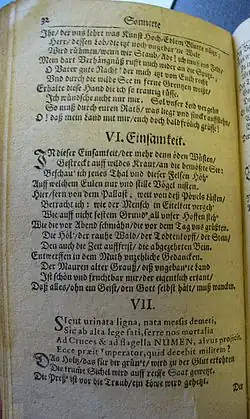 32 Sonnette
Herr/ dessen Lob/ die itzt noch ungebor'ne Welt
Wird rühmen/ wenn wir Staub/ Ade! ich muß ins Feld/
Mein hart Verhängnüß rufft mich wider an die Spitze;
O Vater gute Nacht! der mich itzt von Euch
Und durch die wilde See in ferne Grentzen weist/
Erhalte diese Hand die ich so traurig küsse.
Ich wündsche nicht mir. Sol unser Land vergehn
So muß durch euren Raht/ was ligt und sinckt aufstehn/
O! daß mein Land mit mir/ euch doch baldt frölich grüsse!
VI. Einsamkeit.
IN dieser Einsamkeit/ der mehr denn öden Wüsten/
Gestreckt auff wildes Kraut/ an die bemößte See:
Beschau' ich jenes Thal und dieser Felsen Höh'
Auff welchem Eulen nur und stille Vögel nisten.
Hier/ fern von dem Pallast; weit von deß Pövels Lüsten/
Betracht ich: wie der Mensch in Eitelkeit vergeh'
Wie auff nicht festem Grund' all unser Hoffen steh'
Wie die vor Abend schmähn/ die vor dem Tag uns grüßten.
Die Höl'/ der rauhe Wald/ der Todtenkopff/ der Stein/
Den auch die Zeit aufffrist/ die abgezehrten Bein.
Entwerffen in dem Muth unzehliche Gedancken.
Der Mauren alter Grauß/ diß ungebau'te Land
Ist schön und fruchtbar mir/ der eigentlich erkant/
Daß alles/ ohn ein Geist/ den Gott selbst hält/ muß wancken.
VII.
Sicut urinata ligna, nata messis demeti,
Sic ab alta lege fati, ferre nos mortalia
Ad Cruces & ad flagella NUMEN, alvus projicit.
Ecce præit Imperator, quid decebit milirem?
DAs Holtz/ das für der grün't/ wird zu der Glut erkohren
Die krumme Sichel wird auff reiffe Saat gewetzt.
Die Preß' ist vor die Traub/ ein Löwe wird gehetzt.